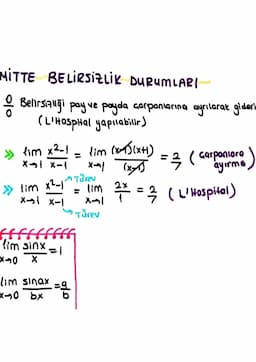 MİTTE BELİRSİZLİK DURUMLARI
0/0 Belirsizliği pay ve payda çarpanlarına ayrılarak gideri
(L'Hospital yapılabilir)
» lim x→1 x²-1/x-1 = lim x→1 (x-1)(x+1)/(x-1) = 2 (çarpanlara ayırma)
» lim x→1 x²-1/x-1 = lim x→1 2x/1 = 2 (L'Hospital)
Türev
Türev
lim x→0 sinx/x = 1
lim x→0 sinax/bx = a/b